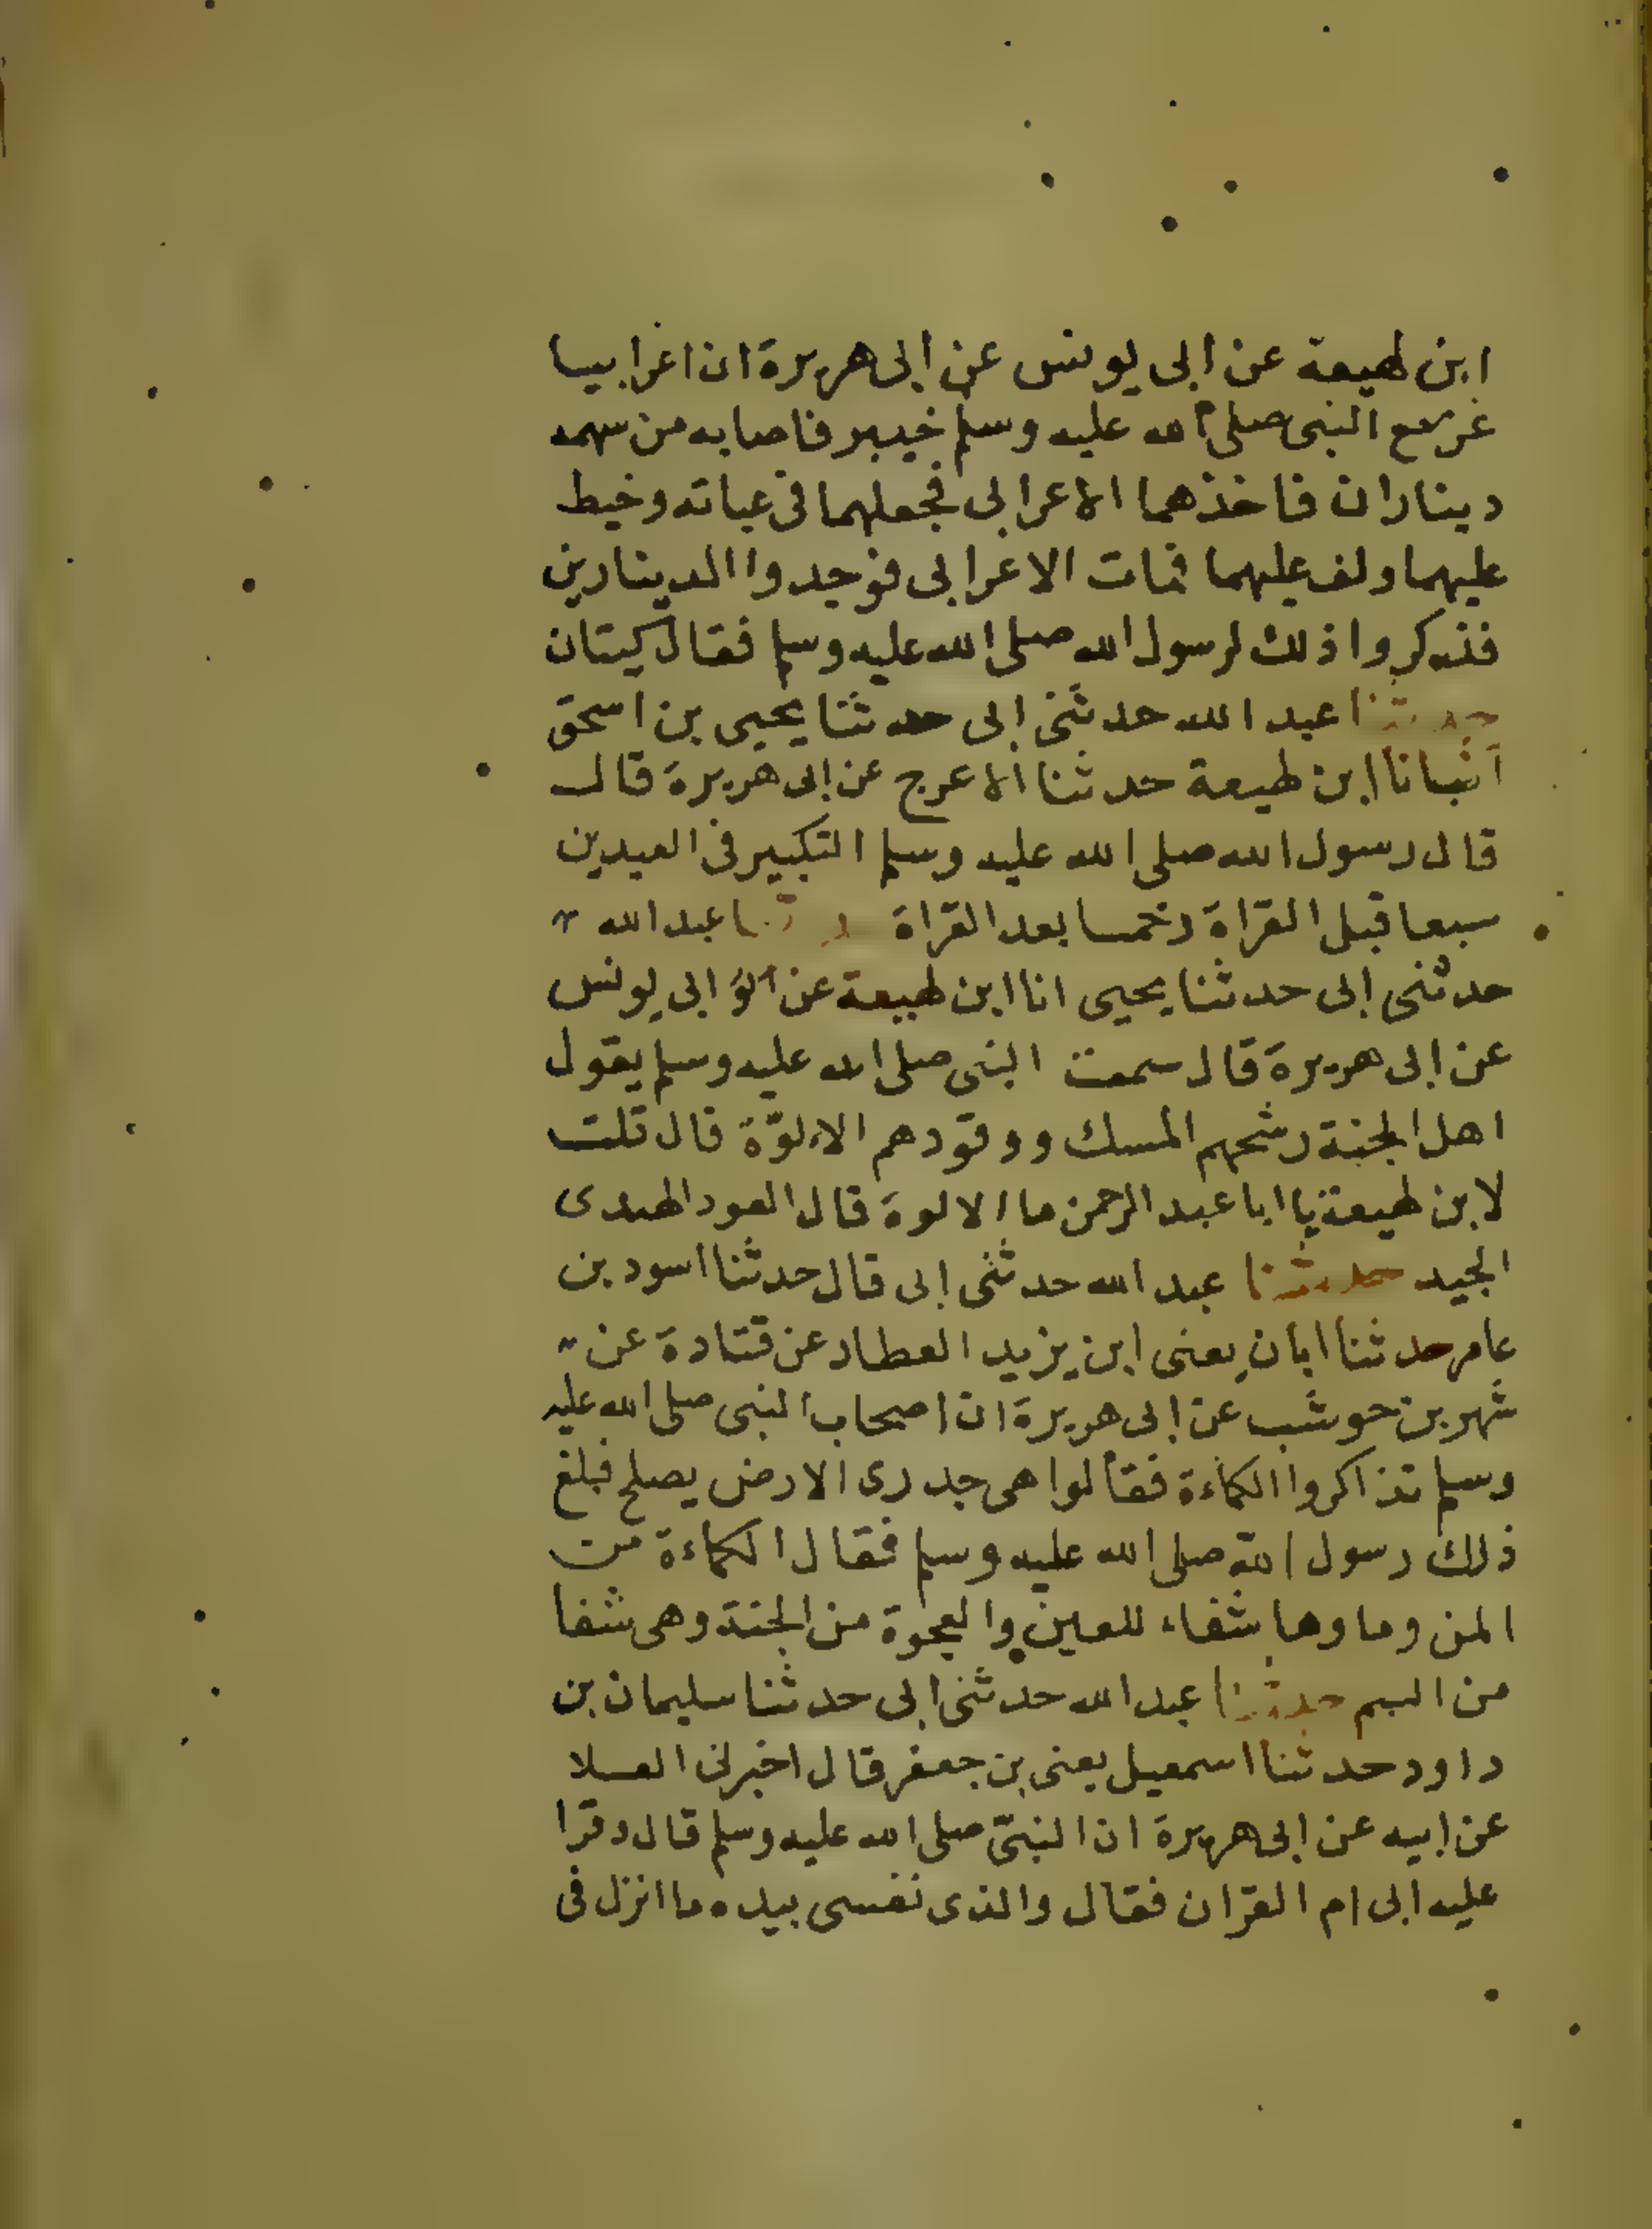 ابن لهيعة عن ابى يونس عن ابى هريرة ان اعرابيا
غز مع النبى صلى الله عليه وسلم خيبر فاصابه من سهمه
ديناران فاخذهما الاعرابى فجعلهما فى عباته وخيط
عليهما ولف عليهما فمات الاعرابى فوجدوا الدينارين
فذكروا ذلك لرسول الله صلى الله عليه وسلم فقال كيتان
حدثنا عبد الله حدثنى ابى حدثنا يحيى بن اسحق
انبانا ابن لهيعة حدثنا الاعرج عن ابى هريرة قال
قال رسول الله صلى الله عليه وسلم التكبير فى العيدين
سبعا قبل القراة وخمسا بعد القراة حدثنا عبد الله
حدثنى ابى حدثنا يحيى انا ابن لهيعة عن ابى يونس
عن ابى هريرة قال سمعت النبى صلى الله عليه وسلم يقول
اهل الجنة رشحهم المسك ووقودهم الالوّة قال قلت
لابن لهيعة يا ابا عبد الرحمن ما الالوة قال العود الهندى
الجيد حدثنا عبد الله حدثنى ابى قال حدثنا اسود بن
عامر حدثنا ابان يعنى ابن يزيد العطار عن قتادة عن
شهر بن حوشب عن ابى هريرة ان اصحاب النبى صلى الله عليه
وسلم تذاكروا الكماءة فقالوا هى جدرى الارض يصلح فبلغ
ذلك رسول الله صلى الله عليه وسلم فقال الكماءة من
المن وماوها شفاء للعين والعجوة من الجنة وهى شفا
من السم حدثنا عبد الله حدثنى ابى حدثنا سليمان بن
داود حدثنا اسمعيل يعنى بن جعفر قال اخبرنى العلا
عن ابيه عن ابى هريرة ان النبىّ صلى الله عليه وسلم قال وقرا
عليه ابى ام القران فقال والذى نفسى بيده ما انزل فى